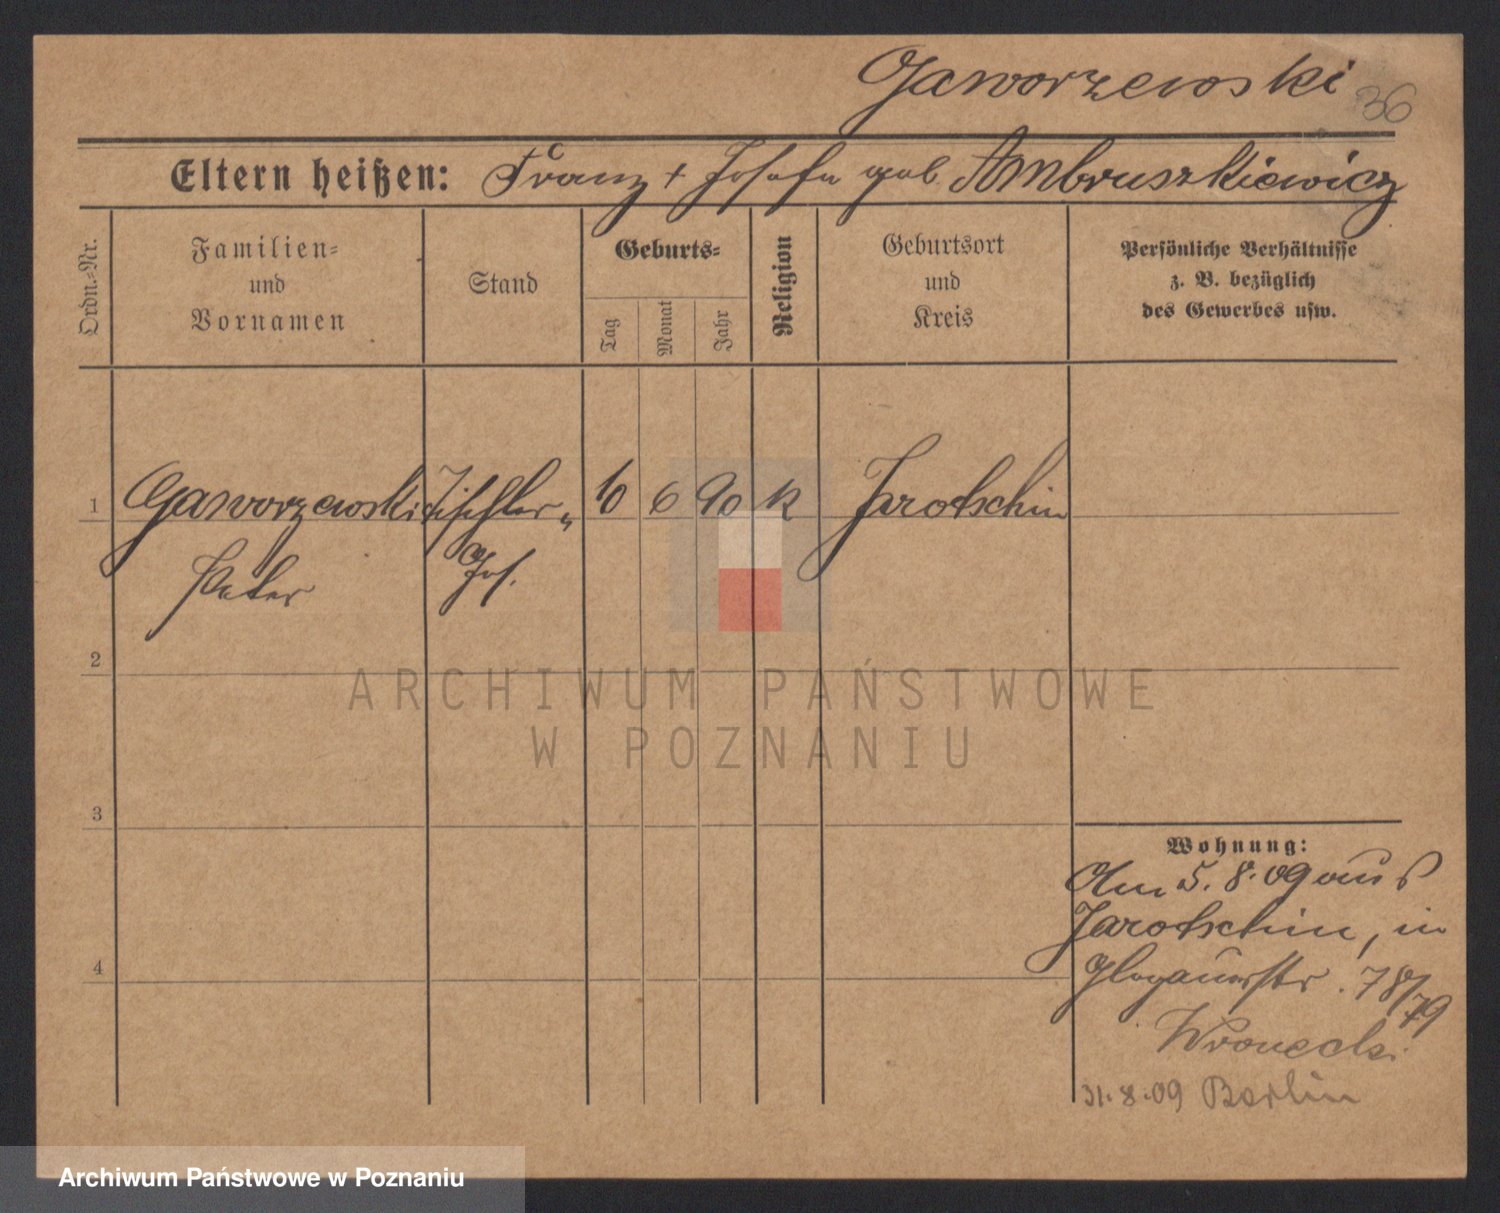 Gaworzewski 36
Eltern heißen: Franz + Josefa geb. Ambruszkiewicz
Ordn.=Nr.
Familien=
und
Vornamen
Stand
Geburts=
Tag
Monat
Jahr
Religion
Geburtsort
und
Kreis
Persönliche Verhältnisse
z. B. bezüglich
des Gewerbes usw.
1 Gaworzewski Tischler= 10 6 90 k Jarotschin
Peter Ges.
2
3
4
Wohnung:
Am 5. 8. 09 aus
Jarotschin, in
Glogauerstr. 78/79
Wronecki
31. 8. 09 Berlin
ARCHIWUM PAŃSTWOWE
W POZNANIU
Archiwum Państwowe w Poznaniu